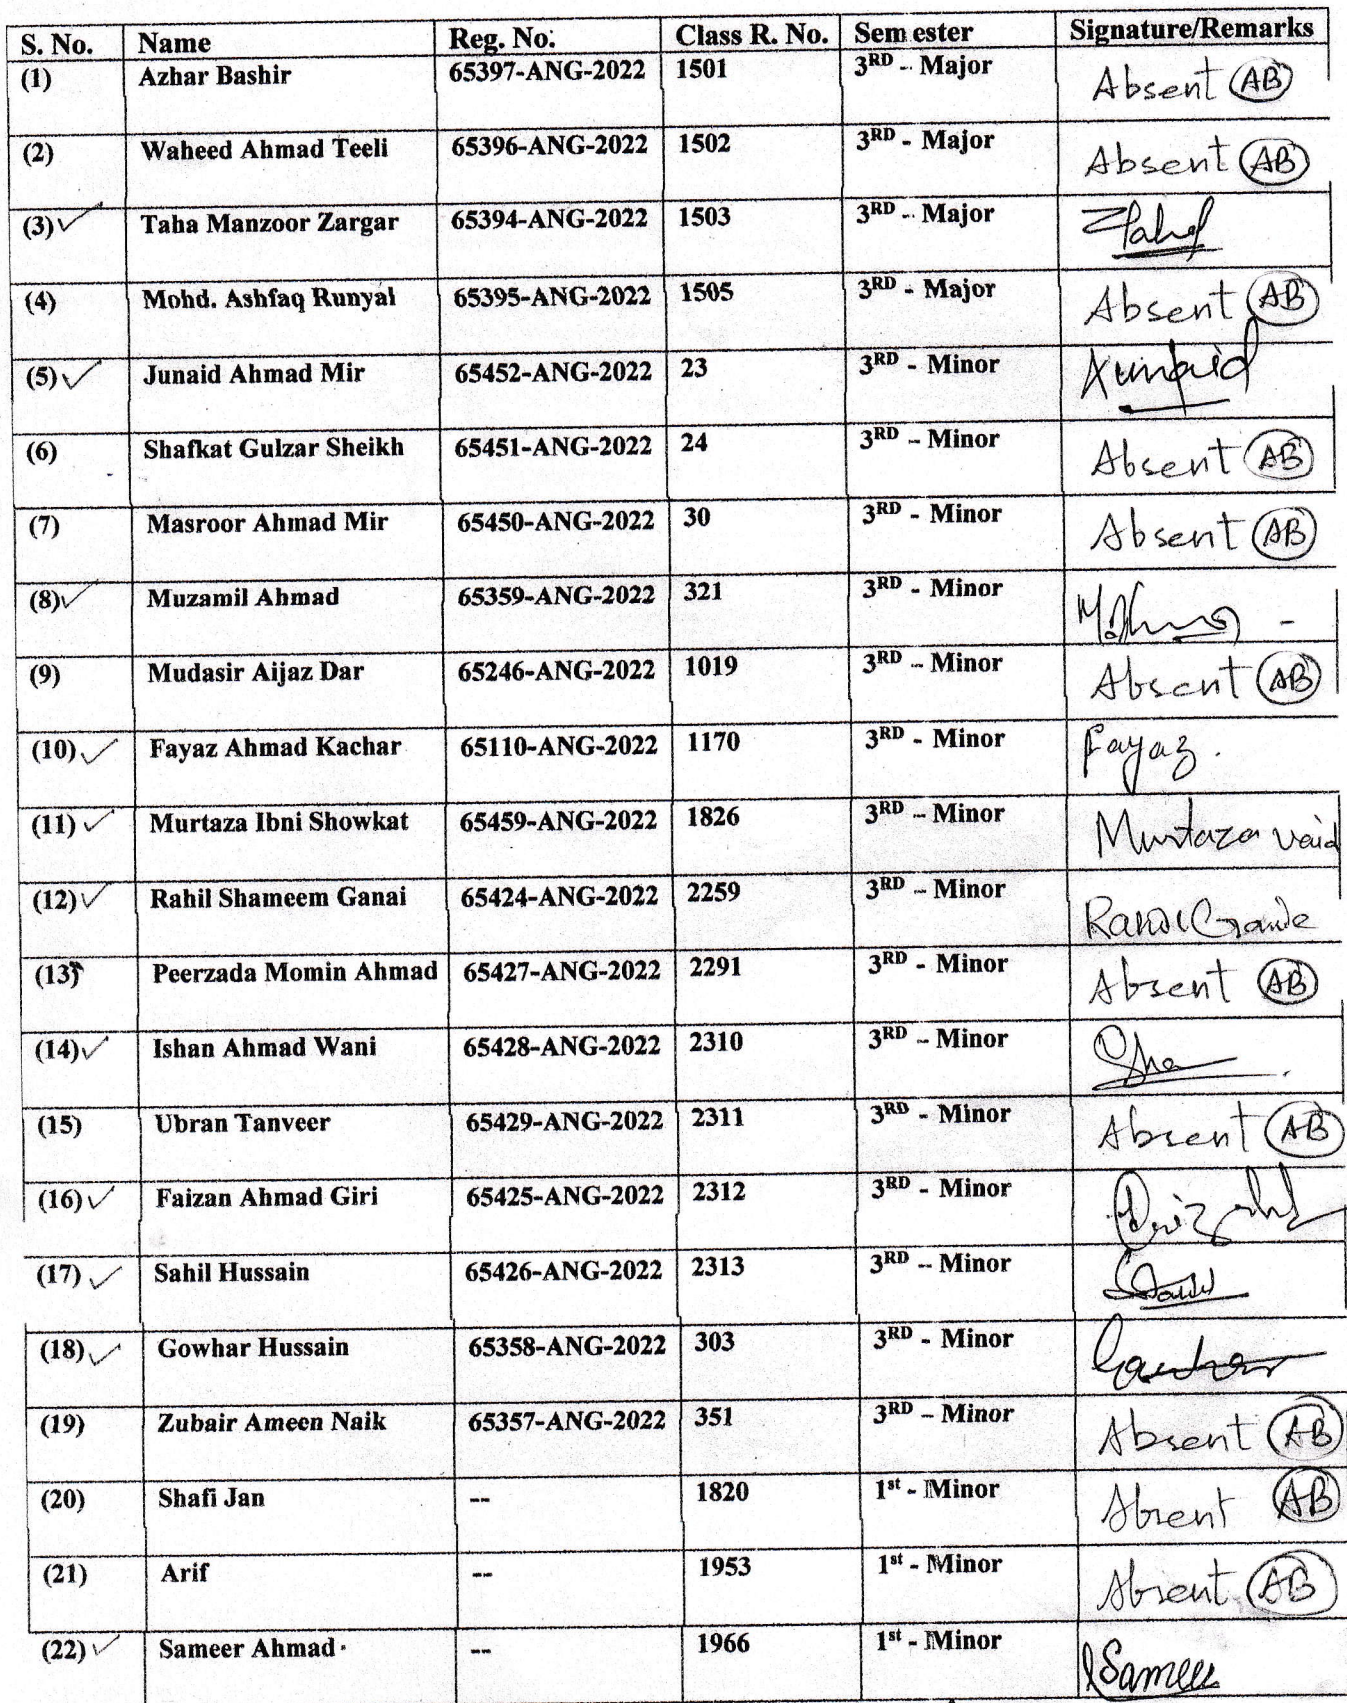 S. No. Name Reg. No. Class R. No. Semester Signature/Remarks
(1) Azhar Bashir 65397-ANG-2022 1501 3RD - Major Absent AB
(2) Waheed Ahmad Teeli 65396-ANG-2022 1502 3RD - Major Absent AB
(3) ✓ Taha Manzoor Zargar 65394-ANG-2022 1503 3RD - Major
(4) Mohd. Ashfaq Runyal 65395-ANG-2022 1505 3RD - Major Absent AB
(5) ✓ Junaid Ahmad Mir 65452-ANG-2022 23 3RD - Minor
(6) Shafkat Gulzar Sheikh 65451-ANG-2022 24 3RD - Minor Absent AB
(7) Masroor Ahmad Mir 65450-ANG-2022 30 3RD - Minor Absent AB
(8) ✓ Muzamil Ahmad 65359-ANG-2022 321 3RD - Minor
(9) Mudasir Aijaz Dar 65246-ANG-2022 1019 3RD - Minor Absent AB
(10) ✓ Fayaz Ahmad Kachar 65110-ANG-2022 1170 3RD - Minor Fayaz.
(11) ✓ Murtaza Ibni Showkat 65459-ANG-2022 1826 3RD - Minor Murtaza
(12) ✓ Rahil Shameem Ganai 65424-ANG-2022 2259 3RD - Minor
(13) Peerzada Momin Ahmad 65427-ANG-2022 2291 3RD - Minor Absent AB
(14) ✓ Ishan Ahmad Wani 65428-ANG-2022 2310 3RD - Minor
(15) Ubran Tanveer 65429-ANG-2022 2311 3RD - Minor Absent AB
(16) ✓ Faizan Ahmad Giri 65425-ANG-2022 2312 3RD - Minor
(17) ✓ Sahil Hussain 65426-ANG-2022 2313 3RD - Minor
(18) ✓ Gowhar Hussain 65358-ANG-2022 303 3RD - Minor
(19) Zubair Ameen Naik 65357-ANG-2022 351 3RD - Minor Absent AB
(20) Shafi Jan -- 1820 1st - Minor Absent AB
(21) Arif -- 1953 1st - Minor Absent AB
(22) ✓ Sameer Ahmad -- 1966 1st - Minor